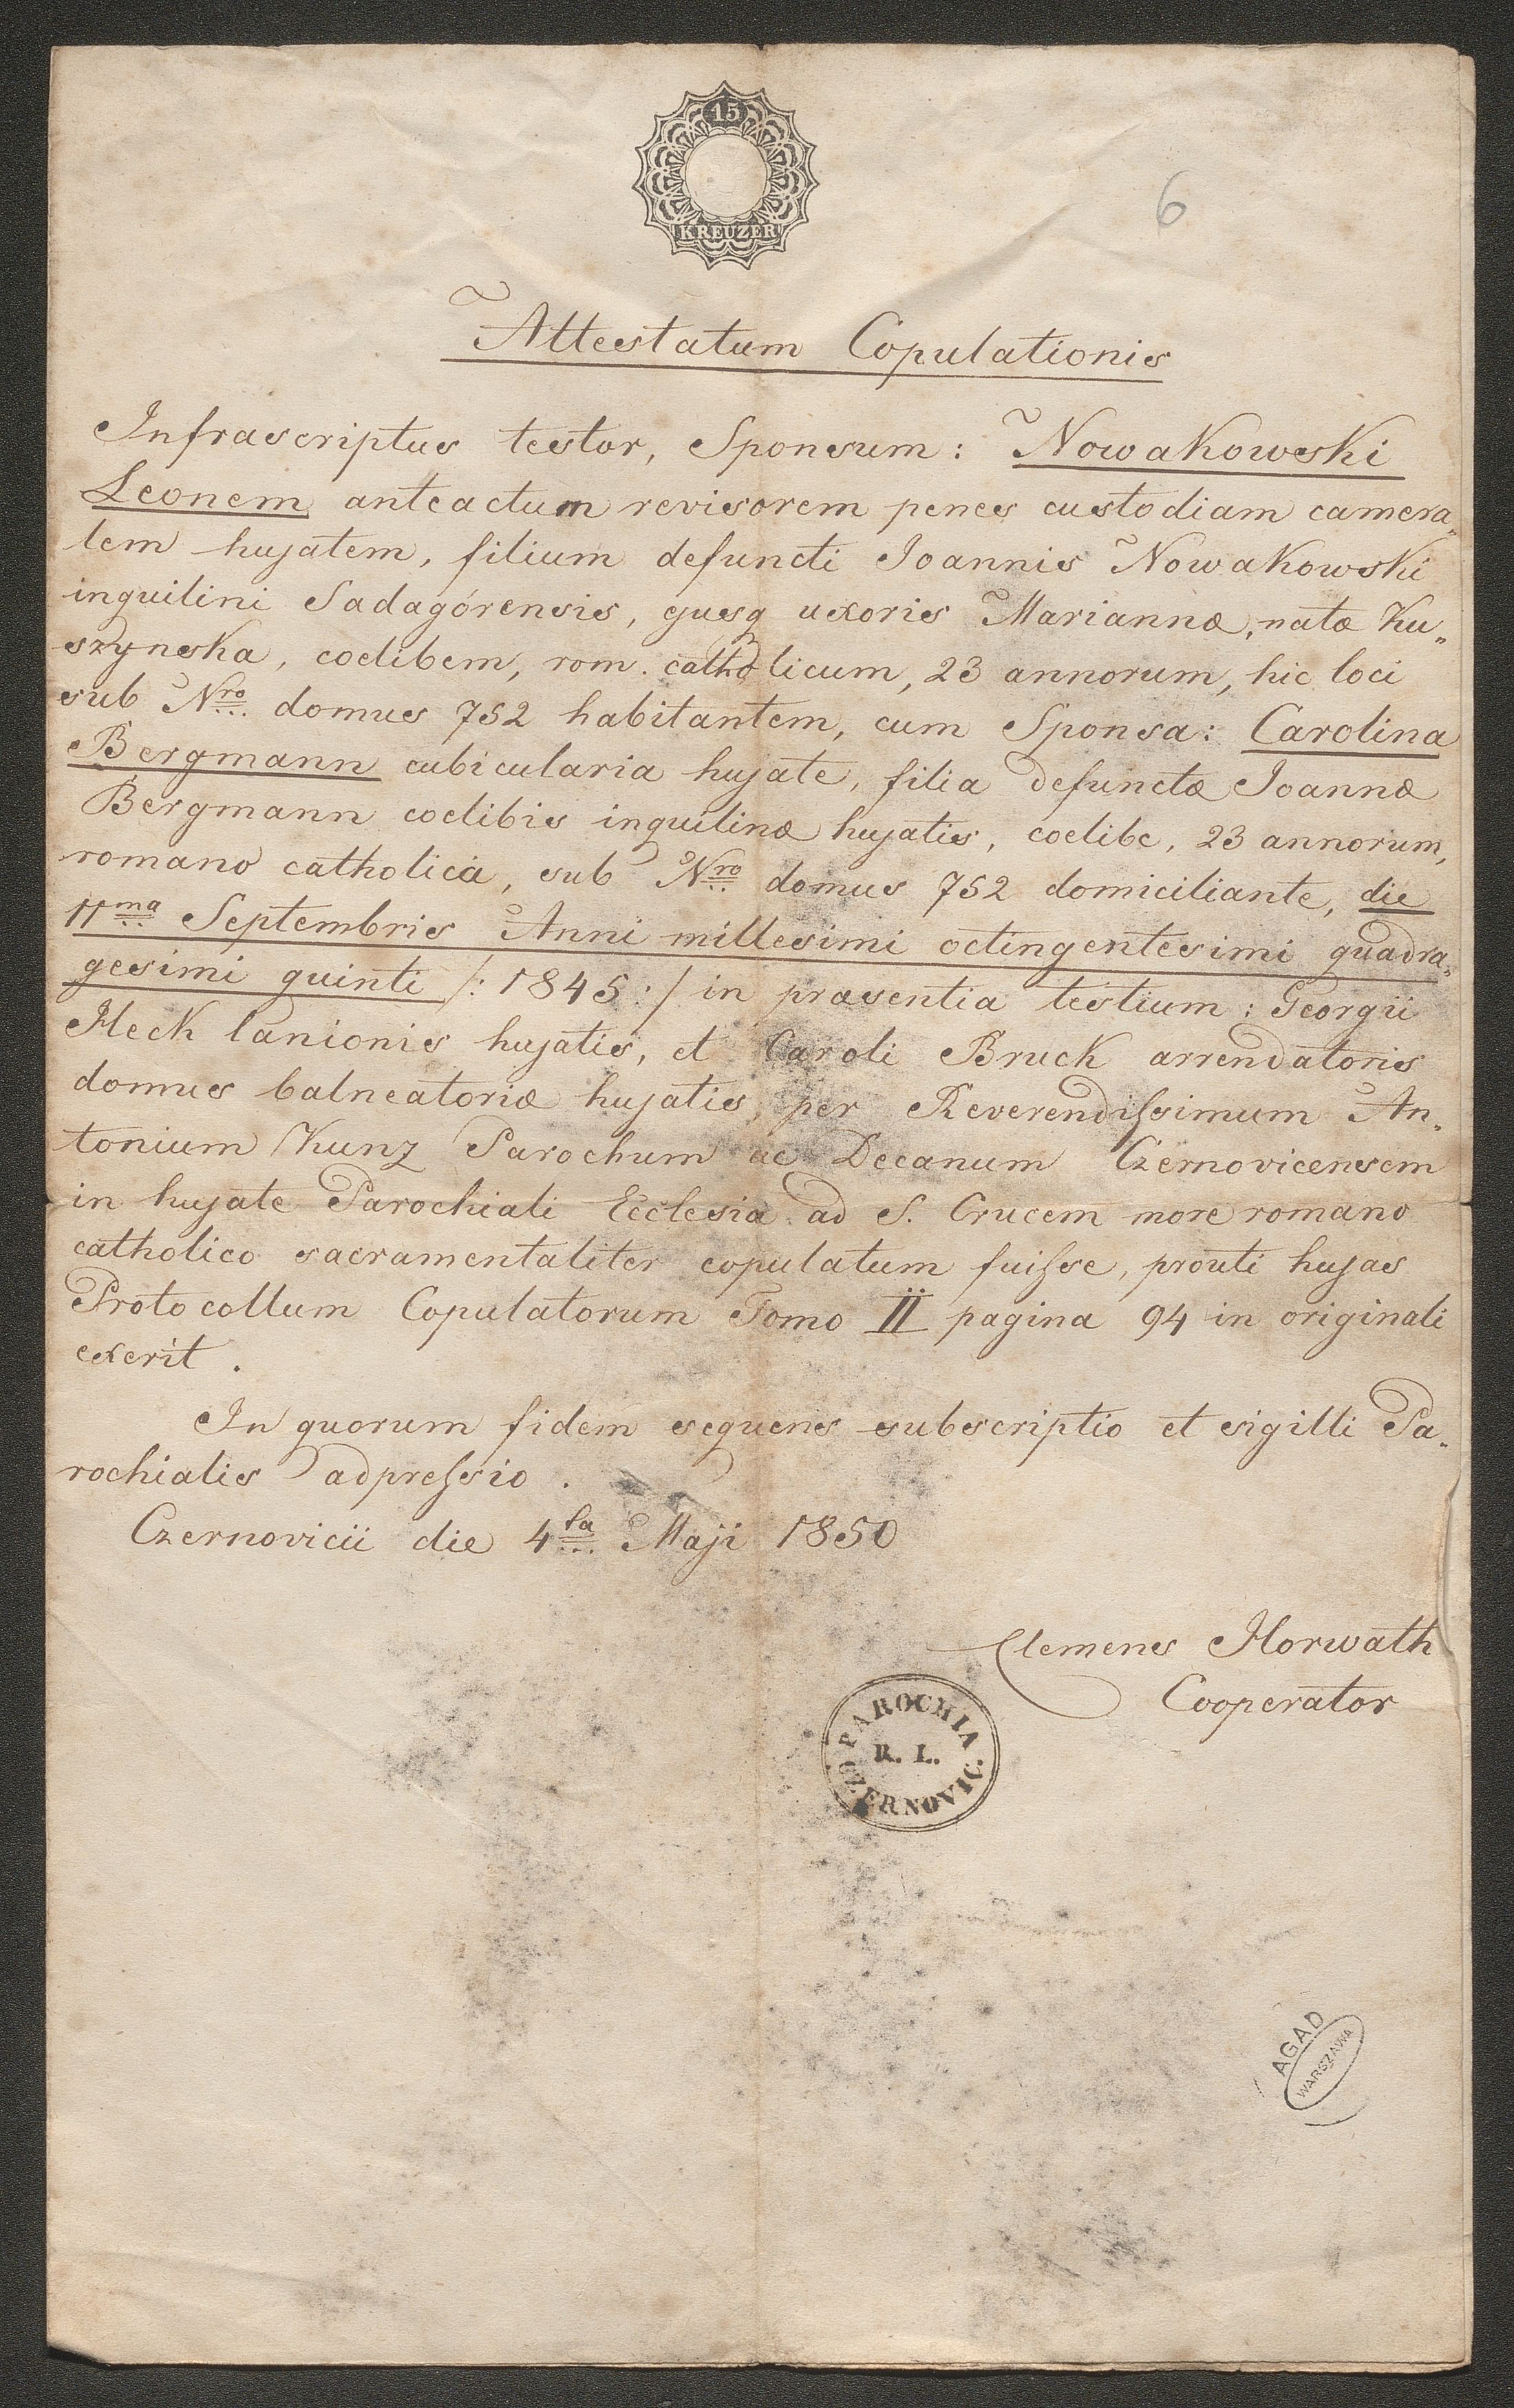 15
KREUZER
6
Attestatum Copulationis
Infrascriptus testor, Sponsum: Nowakowski
Leonem anteactum revisorem penes custodiam camera„
lem hujatem, filium defuncti Joannis Nowakowski
inquilini Sadagórensis, ejusq uxoris Mariannæ, natæ Ku„
szynska, coelibem, rom. catholicum, 23 annorum, hic loci
sub Nro domus 752 habitantem, cum Sponsa: Carolina
Bergmann cubicularia hujate, filia defunctæ Joannæ
Bergmann coelibis inquilinæ hujatis, coelibe, 23 annorum,
romano catholica, sub Nro domus 752 domiciliante, die
11ma Septembris Anni millesimi octingentesimi quadra„
gesimi quinti /: 1845 :/ in præsentia testium: Georgii
Heck lanionis hujatis, et Caroli Bruck arrendatoris
domus balneatoriæ hujatis, per Reverendissimum An„
tonium Kunz Parochum ac Decanum Czernovicensem
in hujate Parochiali Ecclesia ad S. Crucem more romano
catholico sacramentaliter copulatum fuisse, prouti hujas
Protocollum Copulatorum Tomo II pagina 94 in originali
exerit.
In quorum fidem sequens subscriptio et sigilli Pa„
rochialis adpressio.
Czernovicii die 4ta Maji 1850
Clemens Horwath
Cooperator
PAROCHIA
R. L.
CZERNOVIC.
AGAD
WARSZAWA